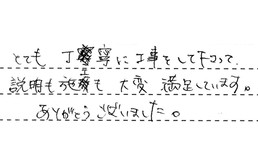 とても 丁寧寧に工事をして下さって
説明も施工も 大変 満足しています。
ありがとうございました。